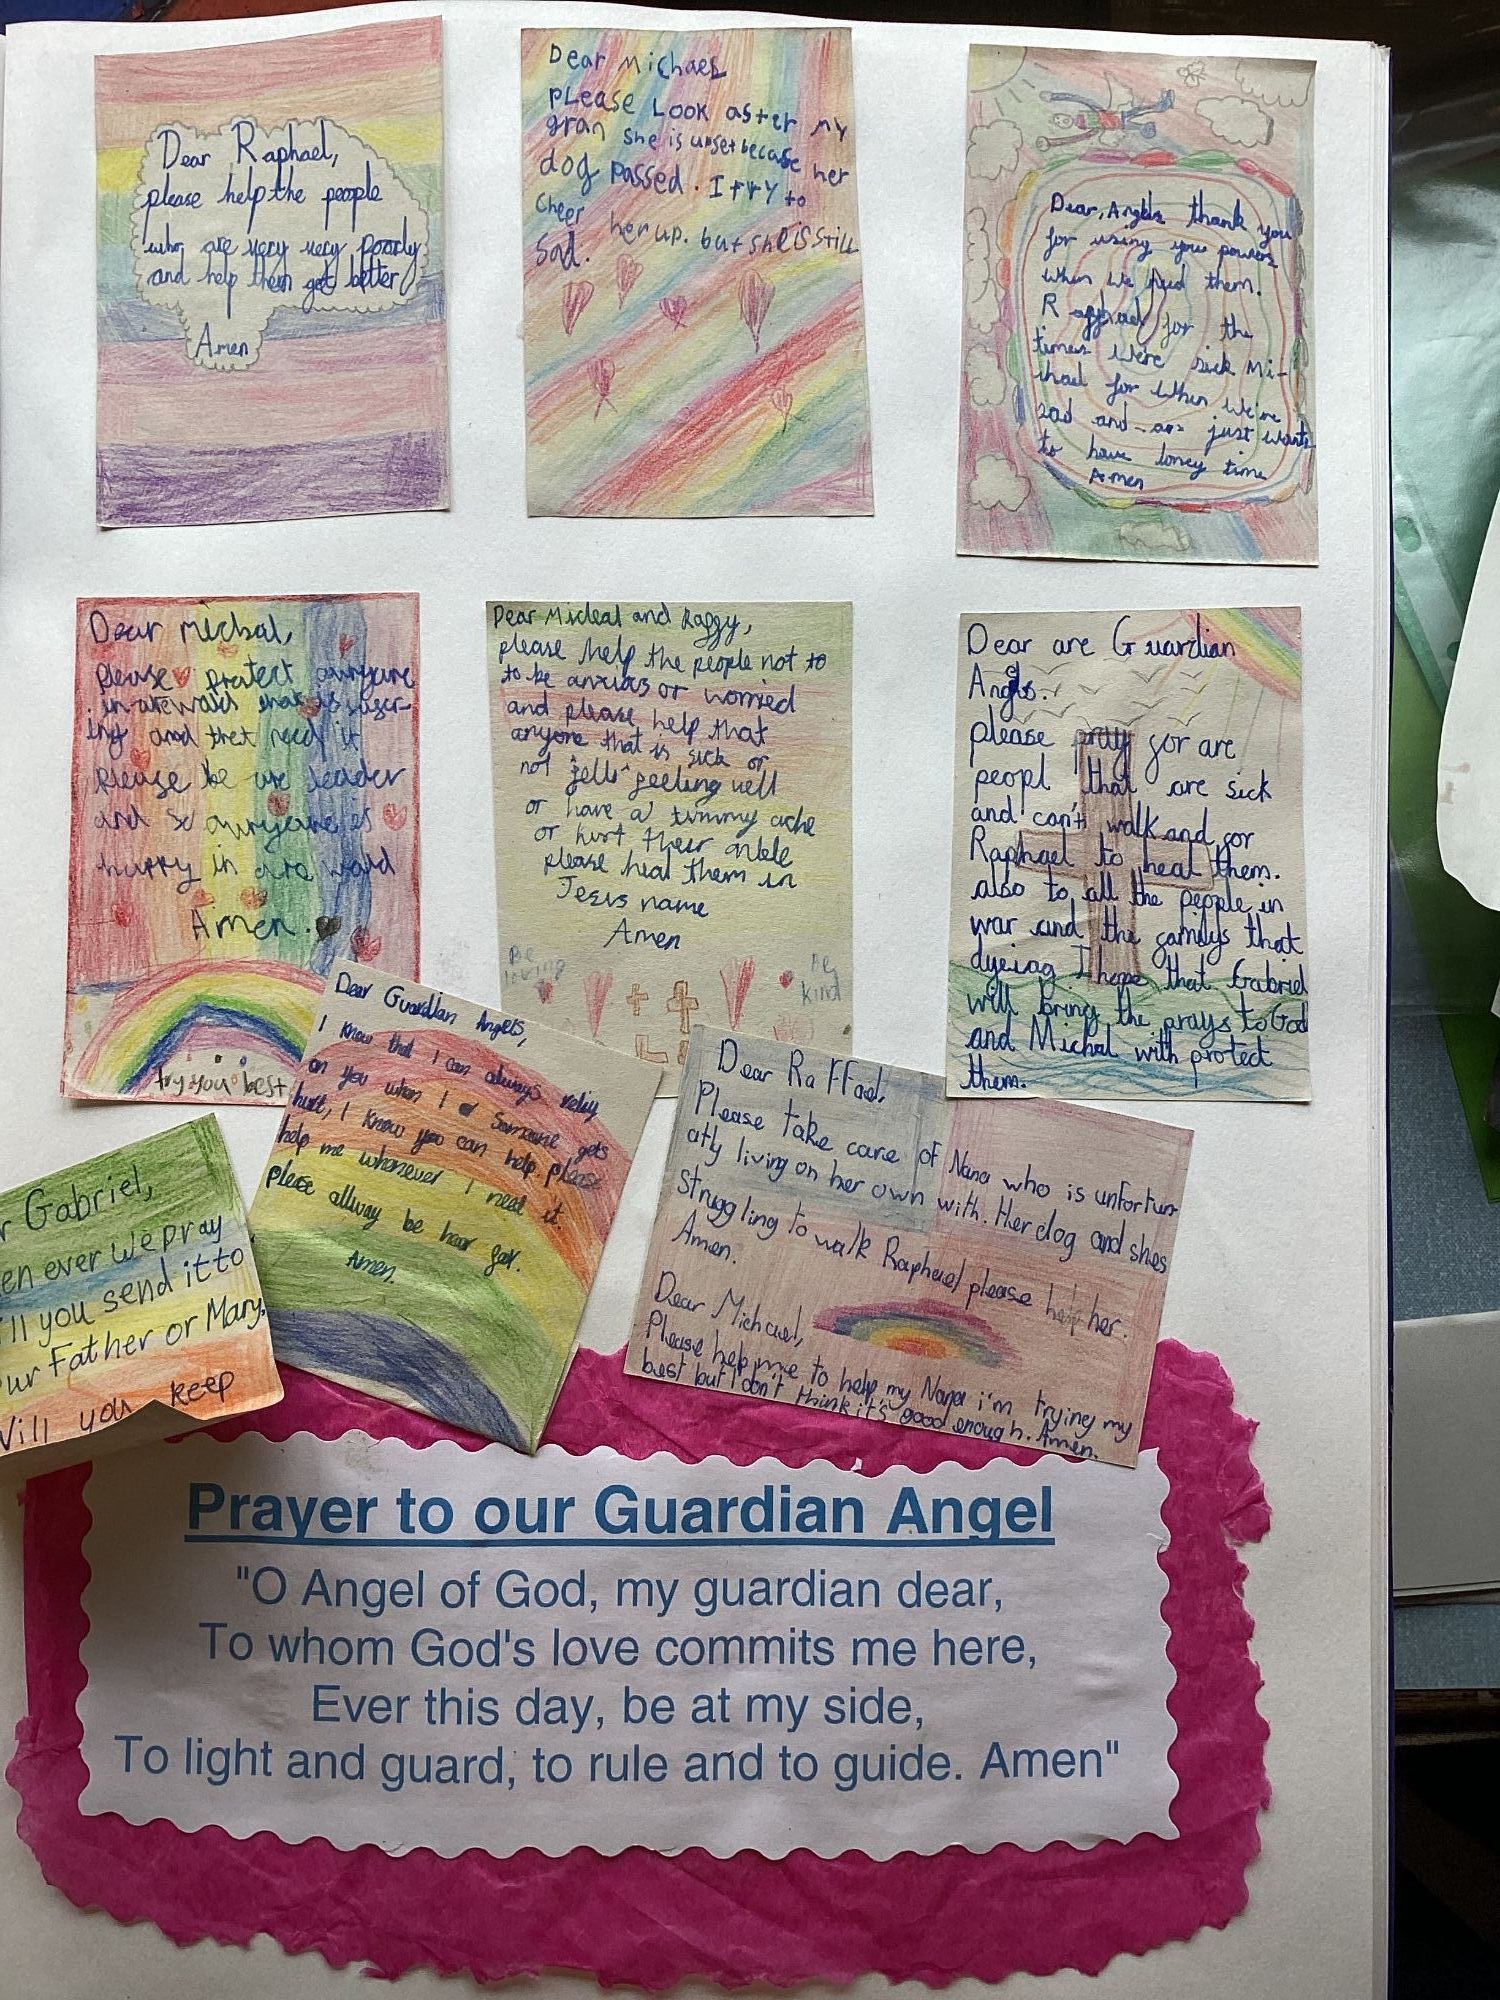 Dear Raphael,
please help the people
who are very very poorly
and help them get better
Amen
Dear Michael
please look after my
gran she is upset because her
dog passed. I try to
cheer her up. but she is still
sad.
Dear, Angles thank you
for using your powers
when we need them.
for the
times we're sick Mi-
chael for when we're
sad and just wants
to have loney time
Amen
Dear Michal,
please protect
and thet need it
please be are leader
and so is
in are
Amen.
try you best
Dear Micleal and Raffy,
please help the people not to
to be anxias or worried
and please help that
anyone that is sick or
not feeling well
or have a tummy ache
or hurt their
please heal them in
Jesus name
Amen
Be loving
Be kind
Dear are Guardian
Angls.
please pray for are
peopl that are sick
and can't walk and for
Raphael to heal them.
also to all the people in
war and the familys that
dyeing I hope that Gabriel
will bring the prays to God
and Michal with protect
them.
Dear Guardian Angels,
I know that I can always reliy
on you when I or Someone gets
hurt, I know you can help please
help me whenever I need it.
please allway be hear for.
Amen.
Dear Raffael,
Please take care of Nana who is unfortun
atly living on her own with. Her dog and shes
struggling to walk Raphael please help her.
Amen.
Dear Michael,
Please help me to help my Nana i'm trying my
best but I don't think it's good enough. Amen.
r Gabriel,
en ever we pray
ill you send it to
ur Father or Mary.
Will you keep
Prayer to our Guardian Angel
"O Angel of God, my guardian dear,
To whom God's love commits me here,
Ever this day, be at my side,
To light and guard, to rule and to guide. Amen"